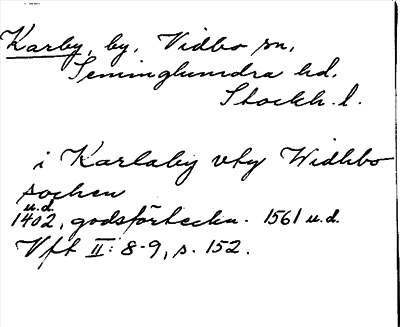 Karby, by, Vidbo sn,
Seminghundra hd.
Stockh. l.
i Karlaby vty Widhbo
sochen
u.d.
1402, godsförteckn. 1561 u.d.
Vft II: 8-9, s. 152.